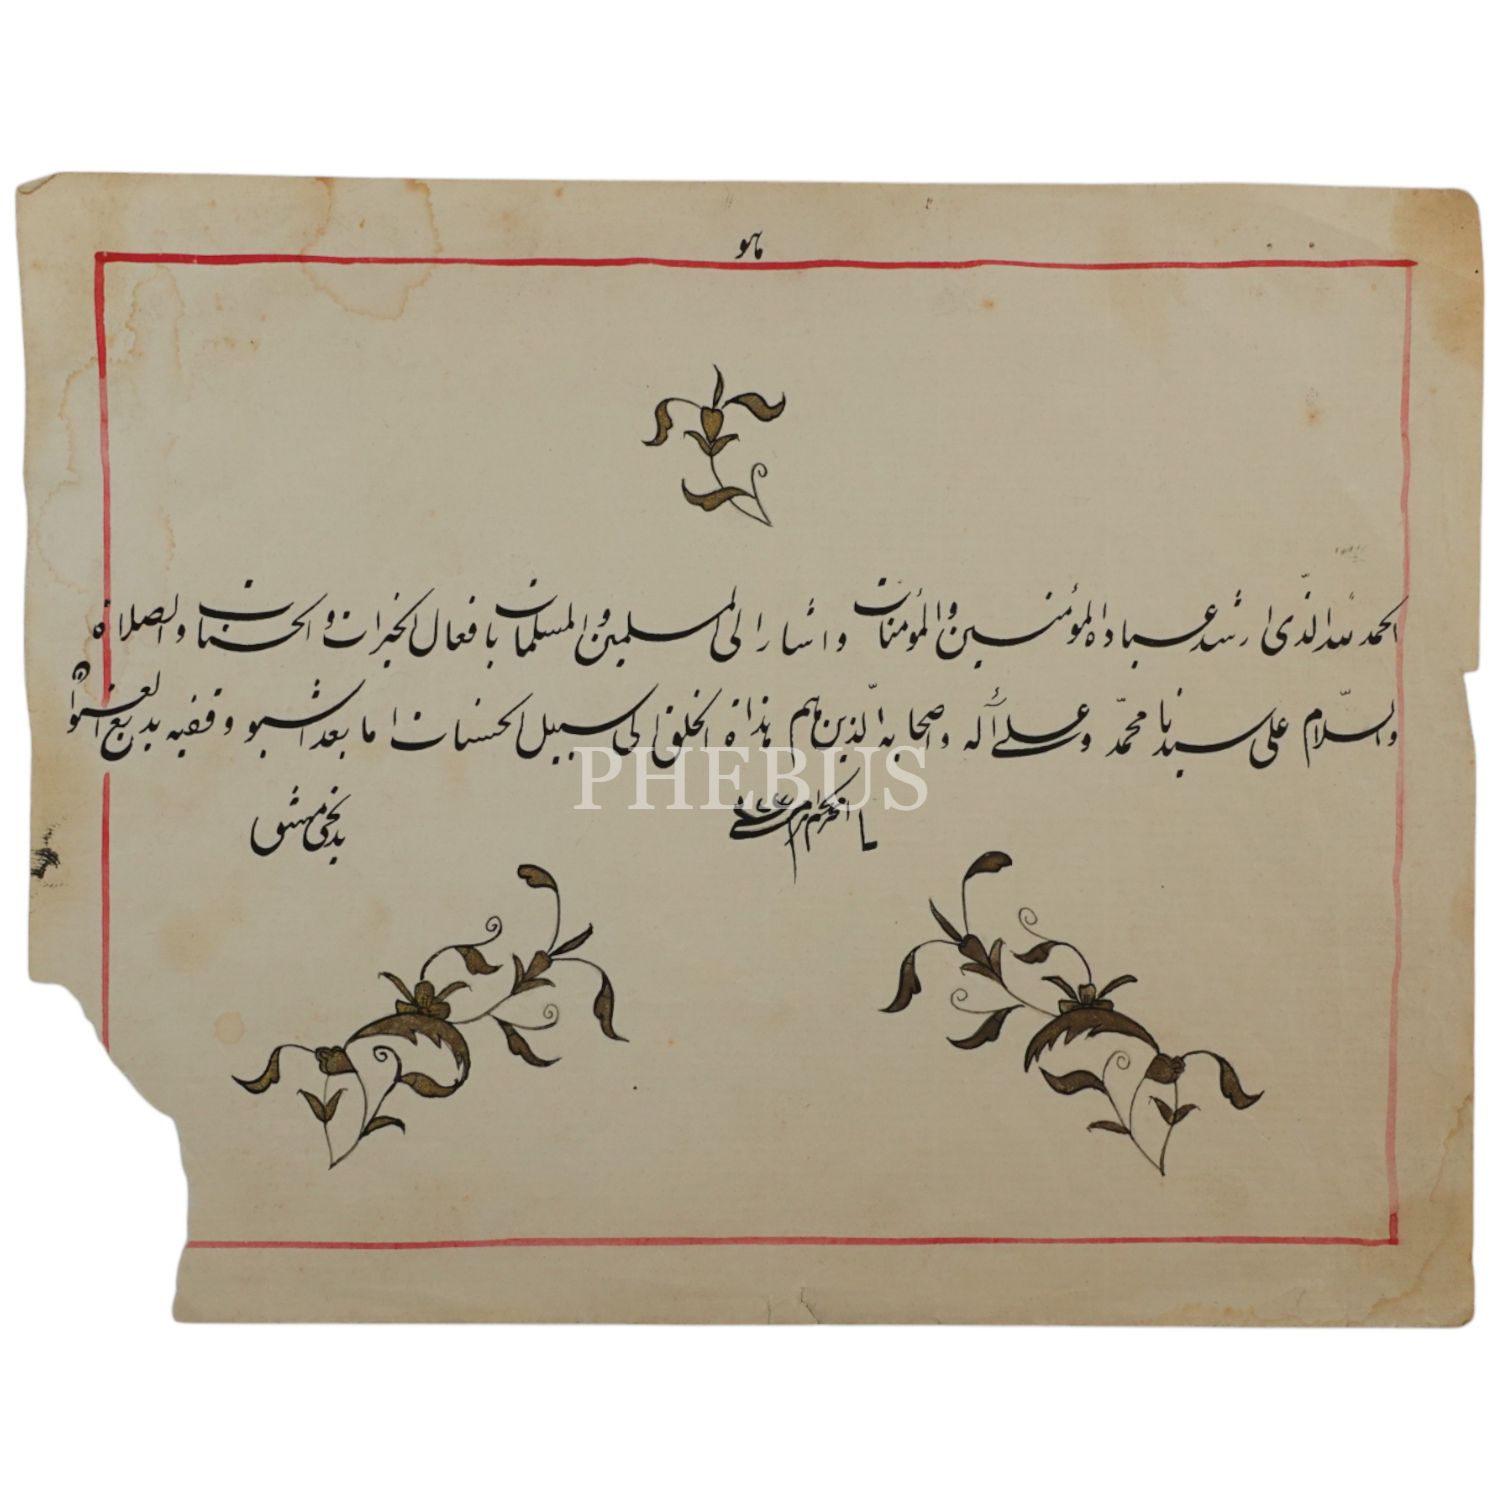 ماهو
الحمد لله الذّى ارشد عباده المؤمنين والمؤمنات واشار الى المسلمين والمسلمات بافعال الخيرات والحسنات والصلاة
والسّلام على سيدنا محمّد وعلى آله واصحابه الّذين هم هداة الخلق الى سبيل الحسنات اما بعد اشبو وقفيه بديع
PHEBUS